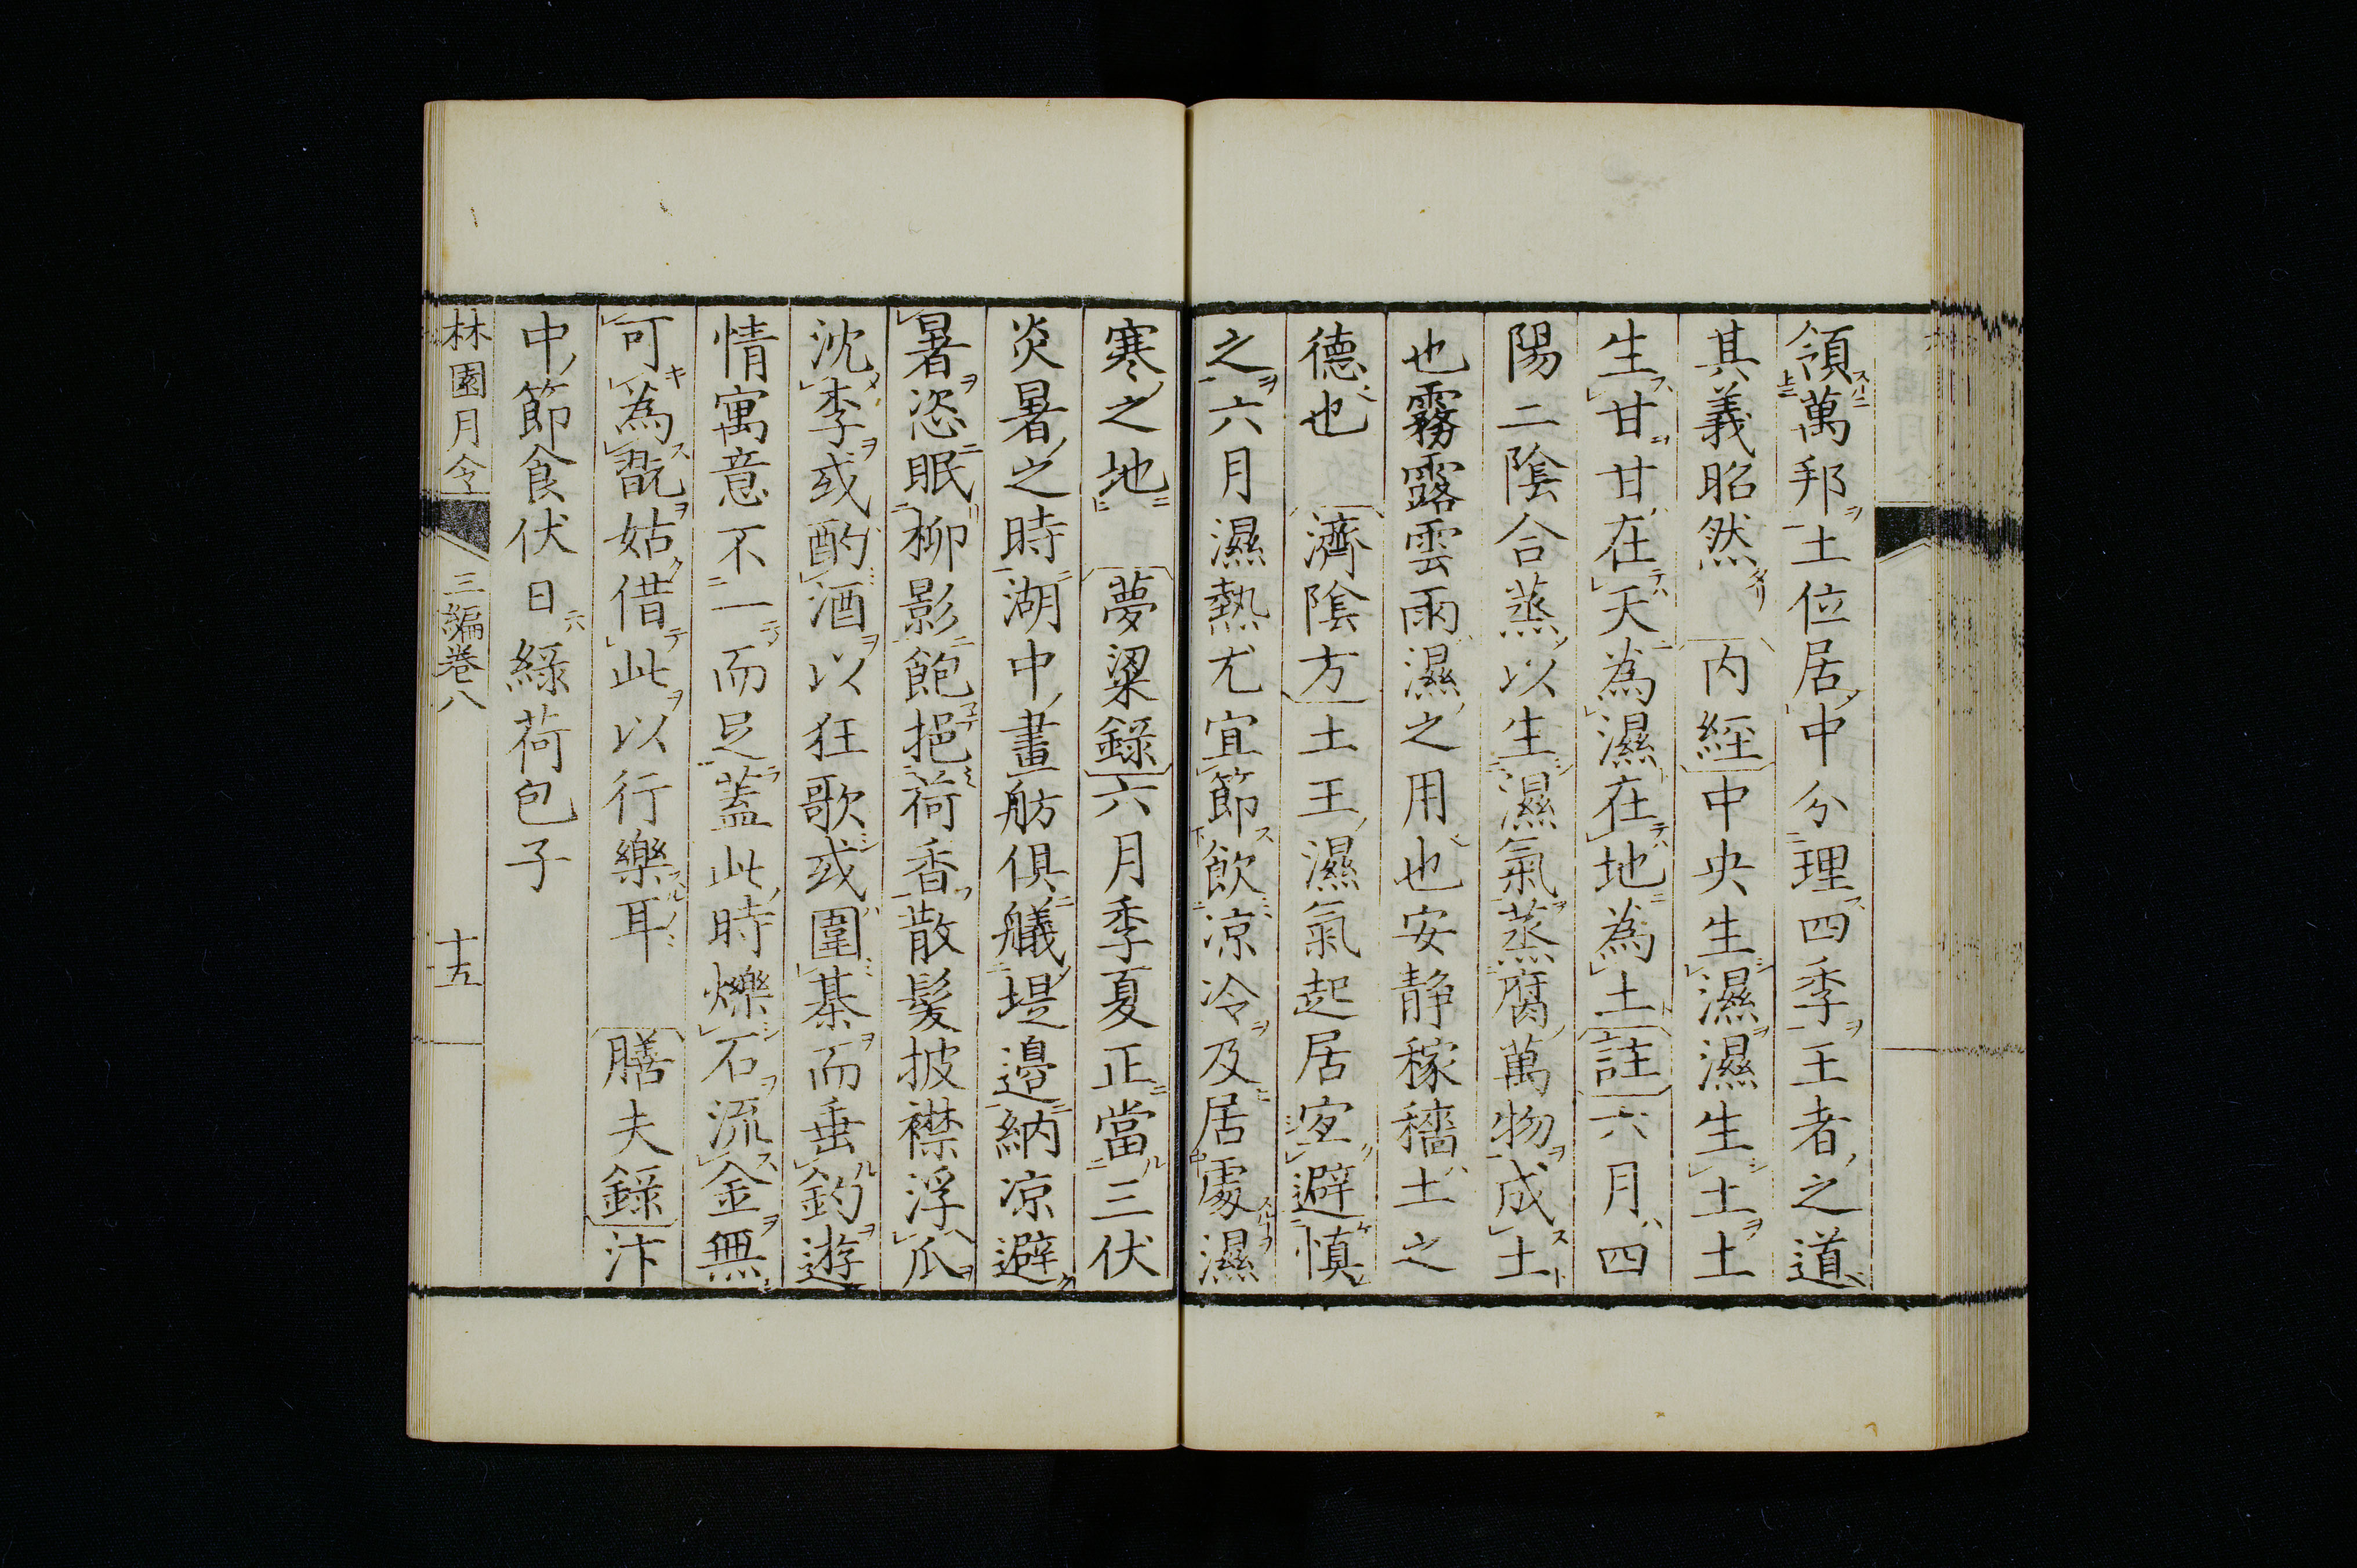 領萬邦土位居中分理四季王者之道
其義昭然 内經中央生濕濕生土土
生甘甘在天為濕在地為土註六月四
陽二陰合蒸以生濕氣蒸腐萬物成土
也霧露雲雨濕之用也安靜稼穡土之
德也 濟陰方土王濕氣起居宻避慎
之六月濕熱尤宜節飲凉冷及居處濕
寒之地 夢粱録六月季夏正當三伏
炎暑之時湖中畫舫俱艤堤邉納凉避
暑恣眠柳影飽挹荷香散髪披襟浮瓜
沈李或酌酒以狂歌或圍棊而垂釣遊
情寓意不一而足蓋此時爍石流金無
可為翫姑借此以行樂耳 膳夫録汴
中節食伏日緑荷包子
林園月令 三編巻八 十五